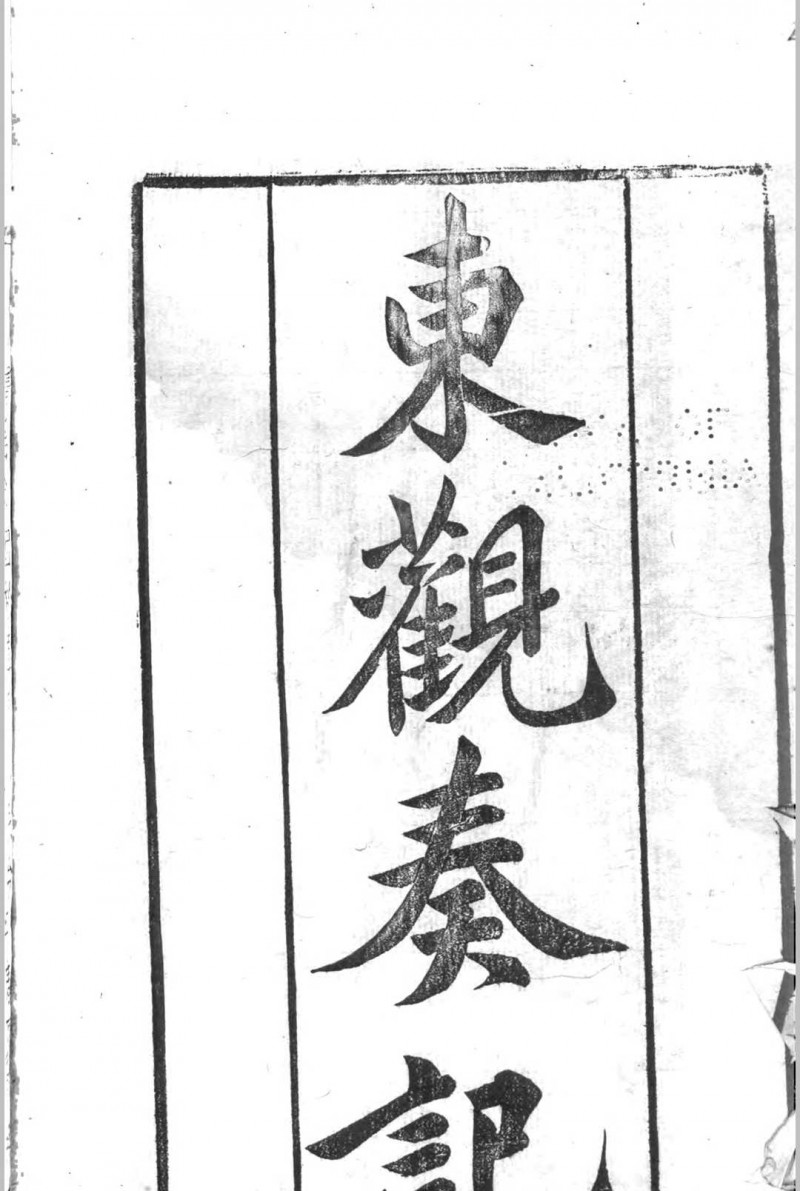 東觀奏記